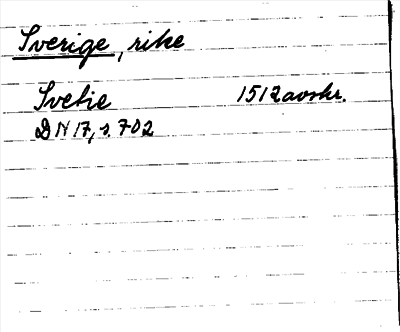 Sverige, rike
Svetie 1512 avskr.
DN 17, s. 702